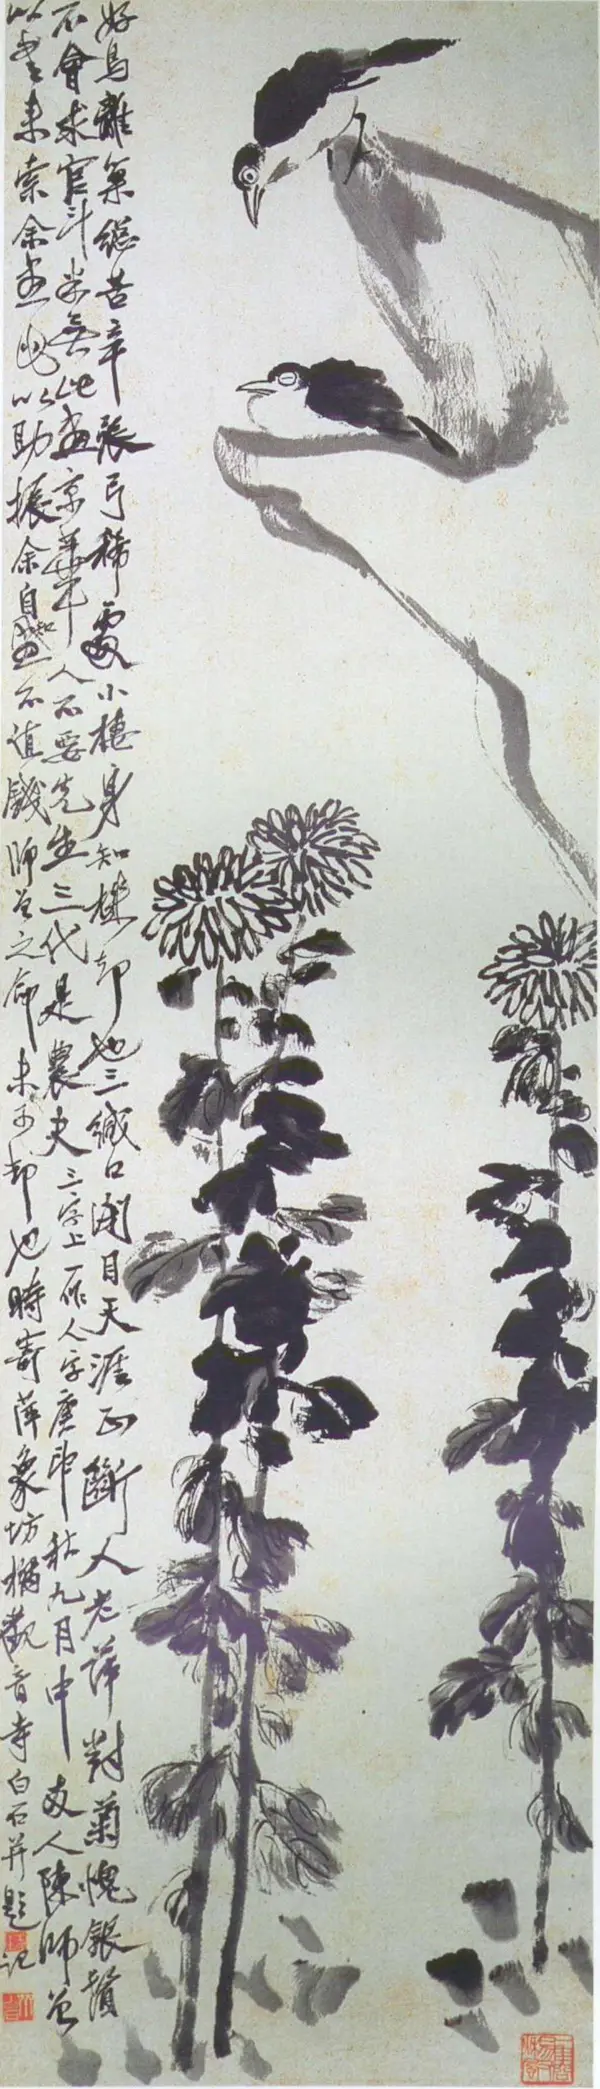 好鳥離巢總苦辛張弓稀處小棲身知機卻也三緘口閉目天涯正斷人老萍對菊愧銀鬚
不會求官斗米無此畫京華人不要先生三代是農夫三字上一作人字庚申秋九月中友人陳師曾
以書來索余畫以助振余自知畫不值錢師曾之命未可却也時寄萍象坊橋觀音寺白石并題記